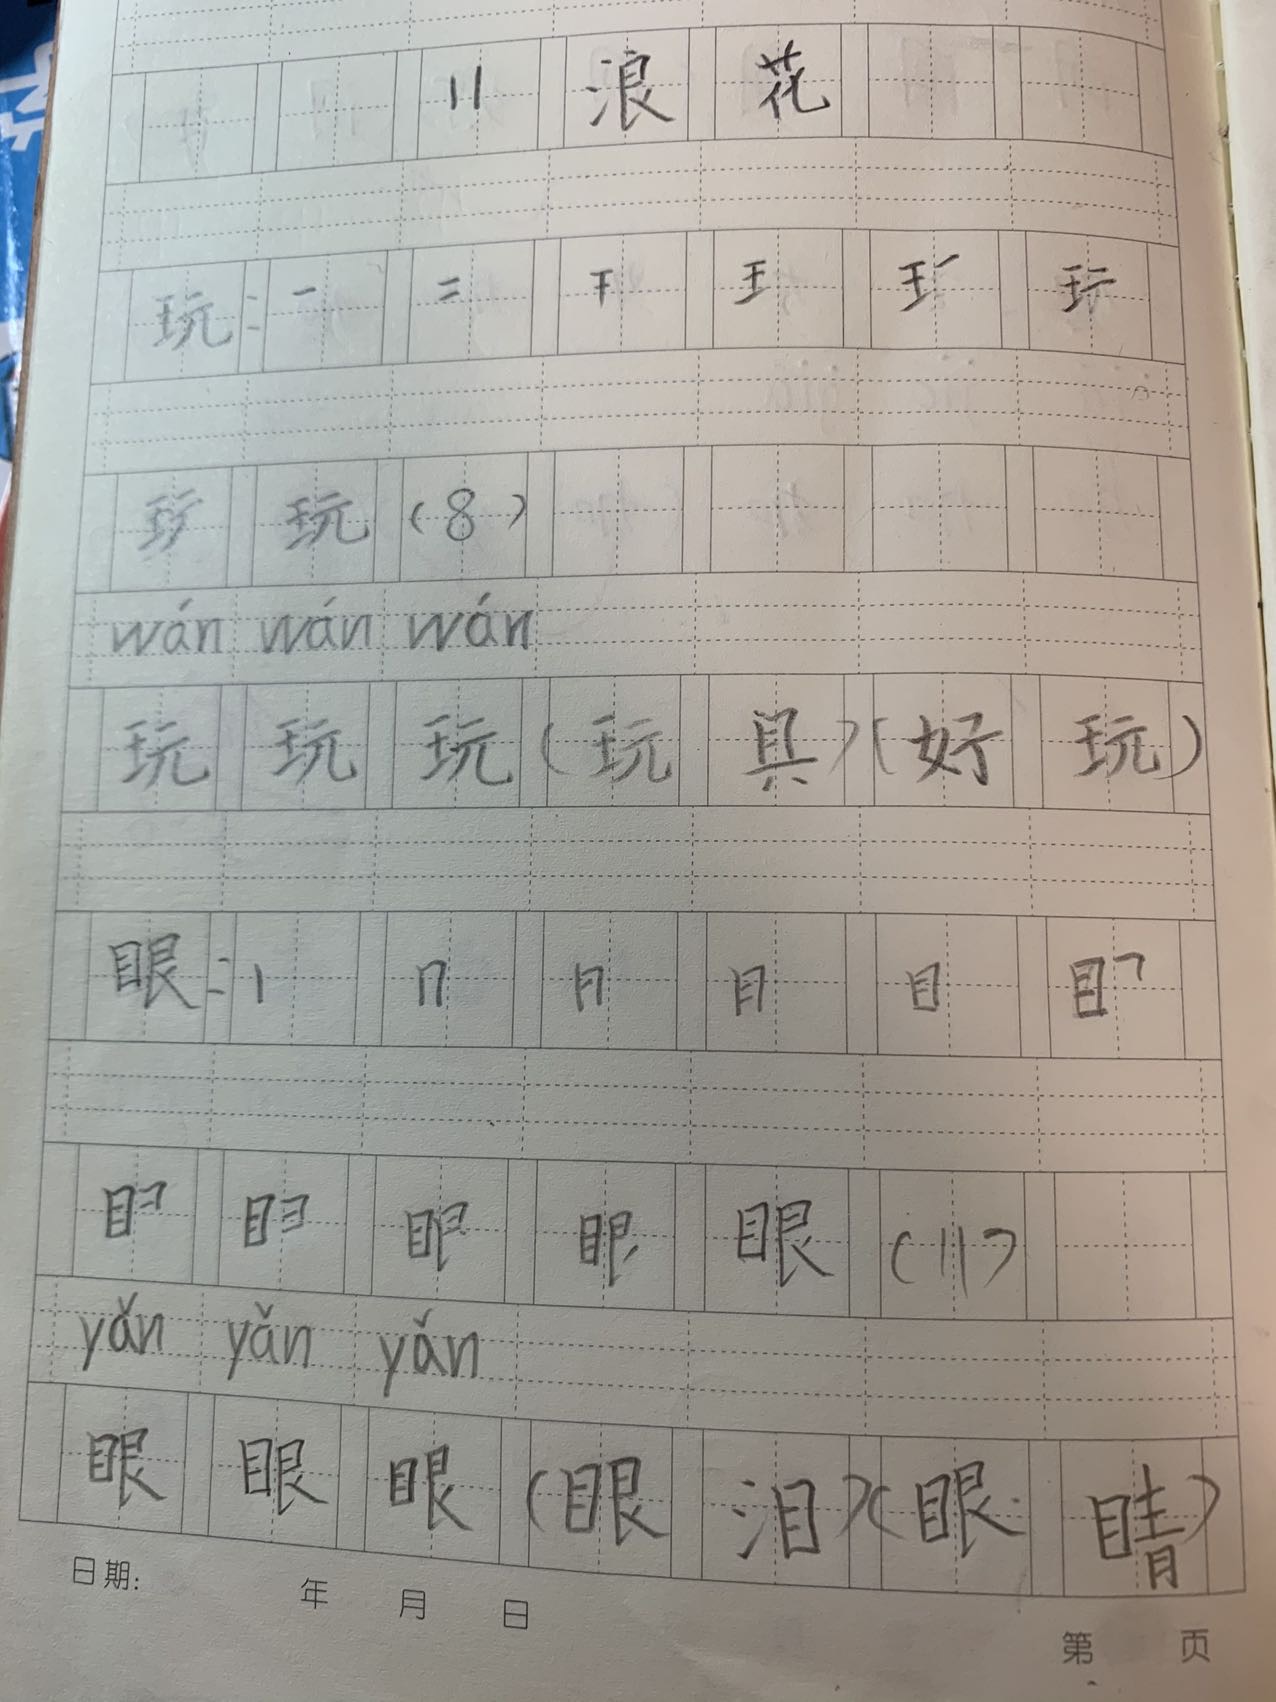 11 浪花
玩：一 二 干 王 王一 王二
玩 (8)
wán wán wán
玩 玩 玩 (玩具)(好玩)
眼：丨 冂 月 目
眼 (11)
yǎn yǎn yǎn
眼 眼 眼 (眼泪)(眼睛)
日期： 年 月 日
第 页